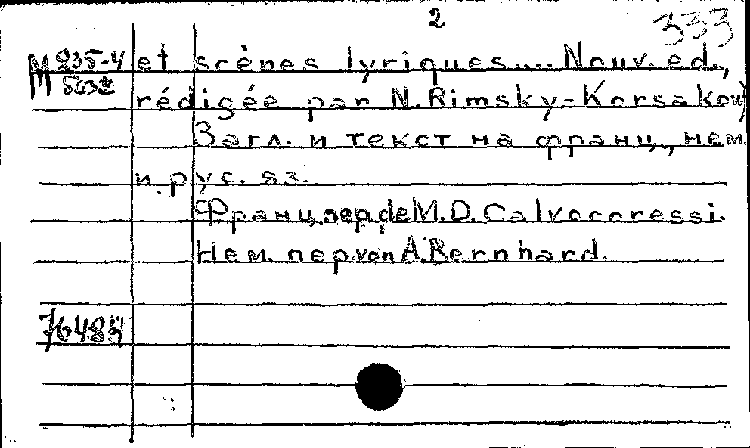 2
333
M 235-4 et scènes lyriques.... Nouv. ed.,
rédigée par N. Rimsky-Korsakow)
Загл. и текст на франц., нем.
и рус. яз.
Франц. пер. de M. D. Calvocoressi.
Нем. пер. von A. Bernhard.